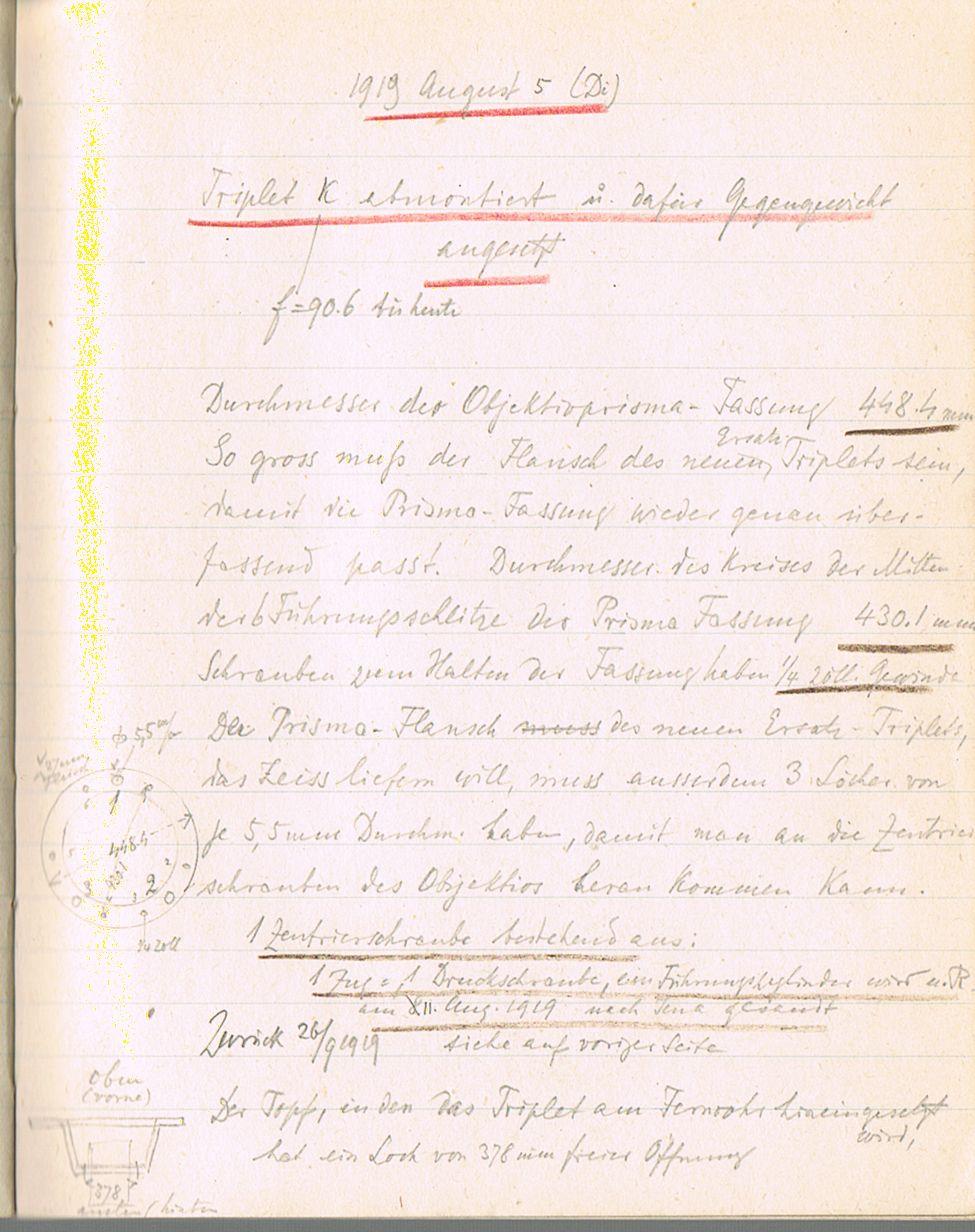 1919 August 5 (Di)
Triplet K abmontiert u. dafür Gegengewicht
angesetzt
f=90.6 bis heute
Durchmesser der Objektivprisma-Fassung 448.4 mm
So gross muß der Flansch des neuen Ersatz-Triplets sein,
damit die Prisma-Fassung wieder genau über-
fassend passt. Durchmesser des Kreises der Mitten
der 6 Führungsschlitze der Prisma Fassung 430.1 mm
Schrauben zum Halten der Fassung haben 1/4 zöll. Gewinde
Der Prisma-Flansch muss des neuen Ersatz-Triplets,
das Zeiss liefern will, muss ausserdem 3 Löcher von
je 5,5 mm Durchm. haben, damit man an die Zentrier
schrauben des Objektivs heran kommen kann.
1 Zentrierschraube bestehend aus:
1 Zug = 1 Druckschraube, ein Führungszylinder wird u. R.
am 11. Aug. 1919 nach Jena gesandt
Zurück 26/9 1919 siehe auf voriger Seite
Der Topf, in den das Triplet am Fernrohr hineingesetzt
wird,
hat ein Loch von 378 mm freier Öffnung
5,5 m/m
1
448.4
430.1
2
1/4 zoll
Oben
(vorne)
378
unten / hinten